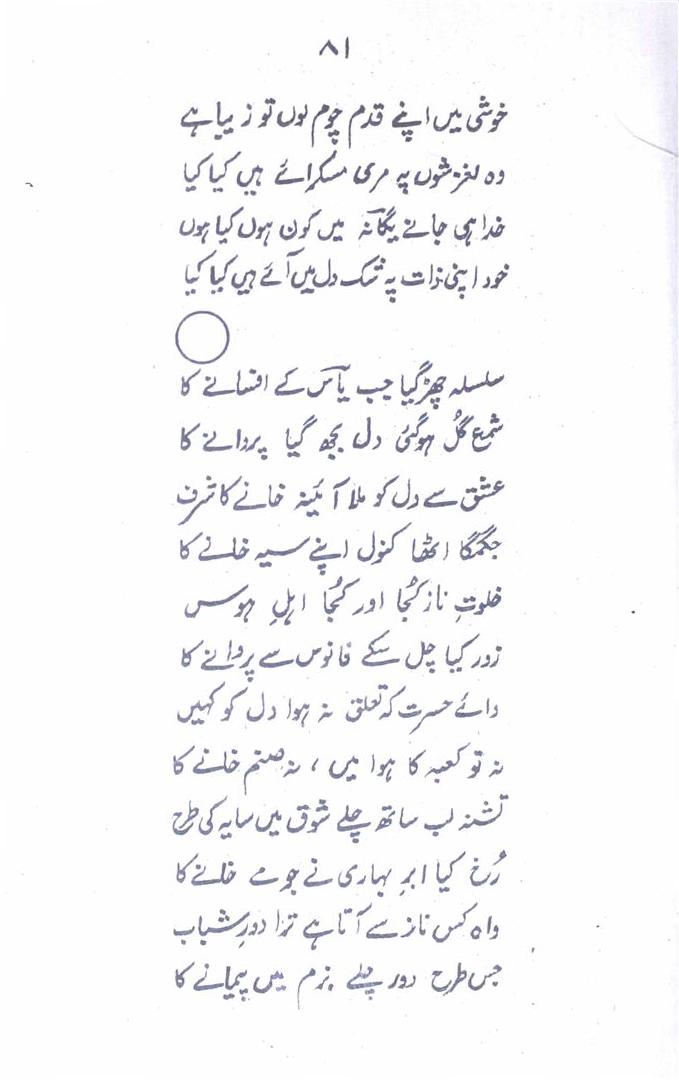 ۸۱
خوشی میں اپنے قدم چوم لوں تو زیبا ہے
وہ لغزشوں پہ مری مسکرائے ہیں کیا کیا
خدا ہی جانے یگانہؔ میں کون ہوں کیا ہوں
خود اپنی ذات پہ شک دل میں آئے ہیں کیا کیا
سلسلہ چھڑ گیا جب یاسؔ کے افسانے کا
شمع گُل ہو گئی دل بجھ گیا پروانے کا
عشق سے دل کو ملا آئینہ خانے کا شرف
جگمگا اٹھا کنول اپنے سیہ خانے کا
خلوتِ ناز کُجا اور کُجا اہلِ ہوس
زور کیا چل سکے فانوس سے پروانے کا
وائے حسرت کہ تعلق نہ ہوا دل کو کہیں
نہ تو کعبہ کا ہوا میں ، نہ صنم خانے کا
تشنہ لب ساتھ چلے شوق میں سایہ کی طرح
رُخ کیا ابرِ بہاری نے جو مے خانے کا
واہ کس ناز سے آتا ہے ترا دورِ شباب
جس طرح دور چلے بزم میں پیمانے کا